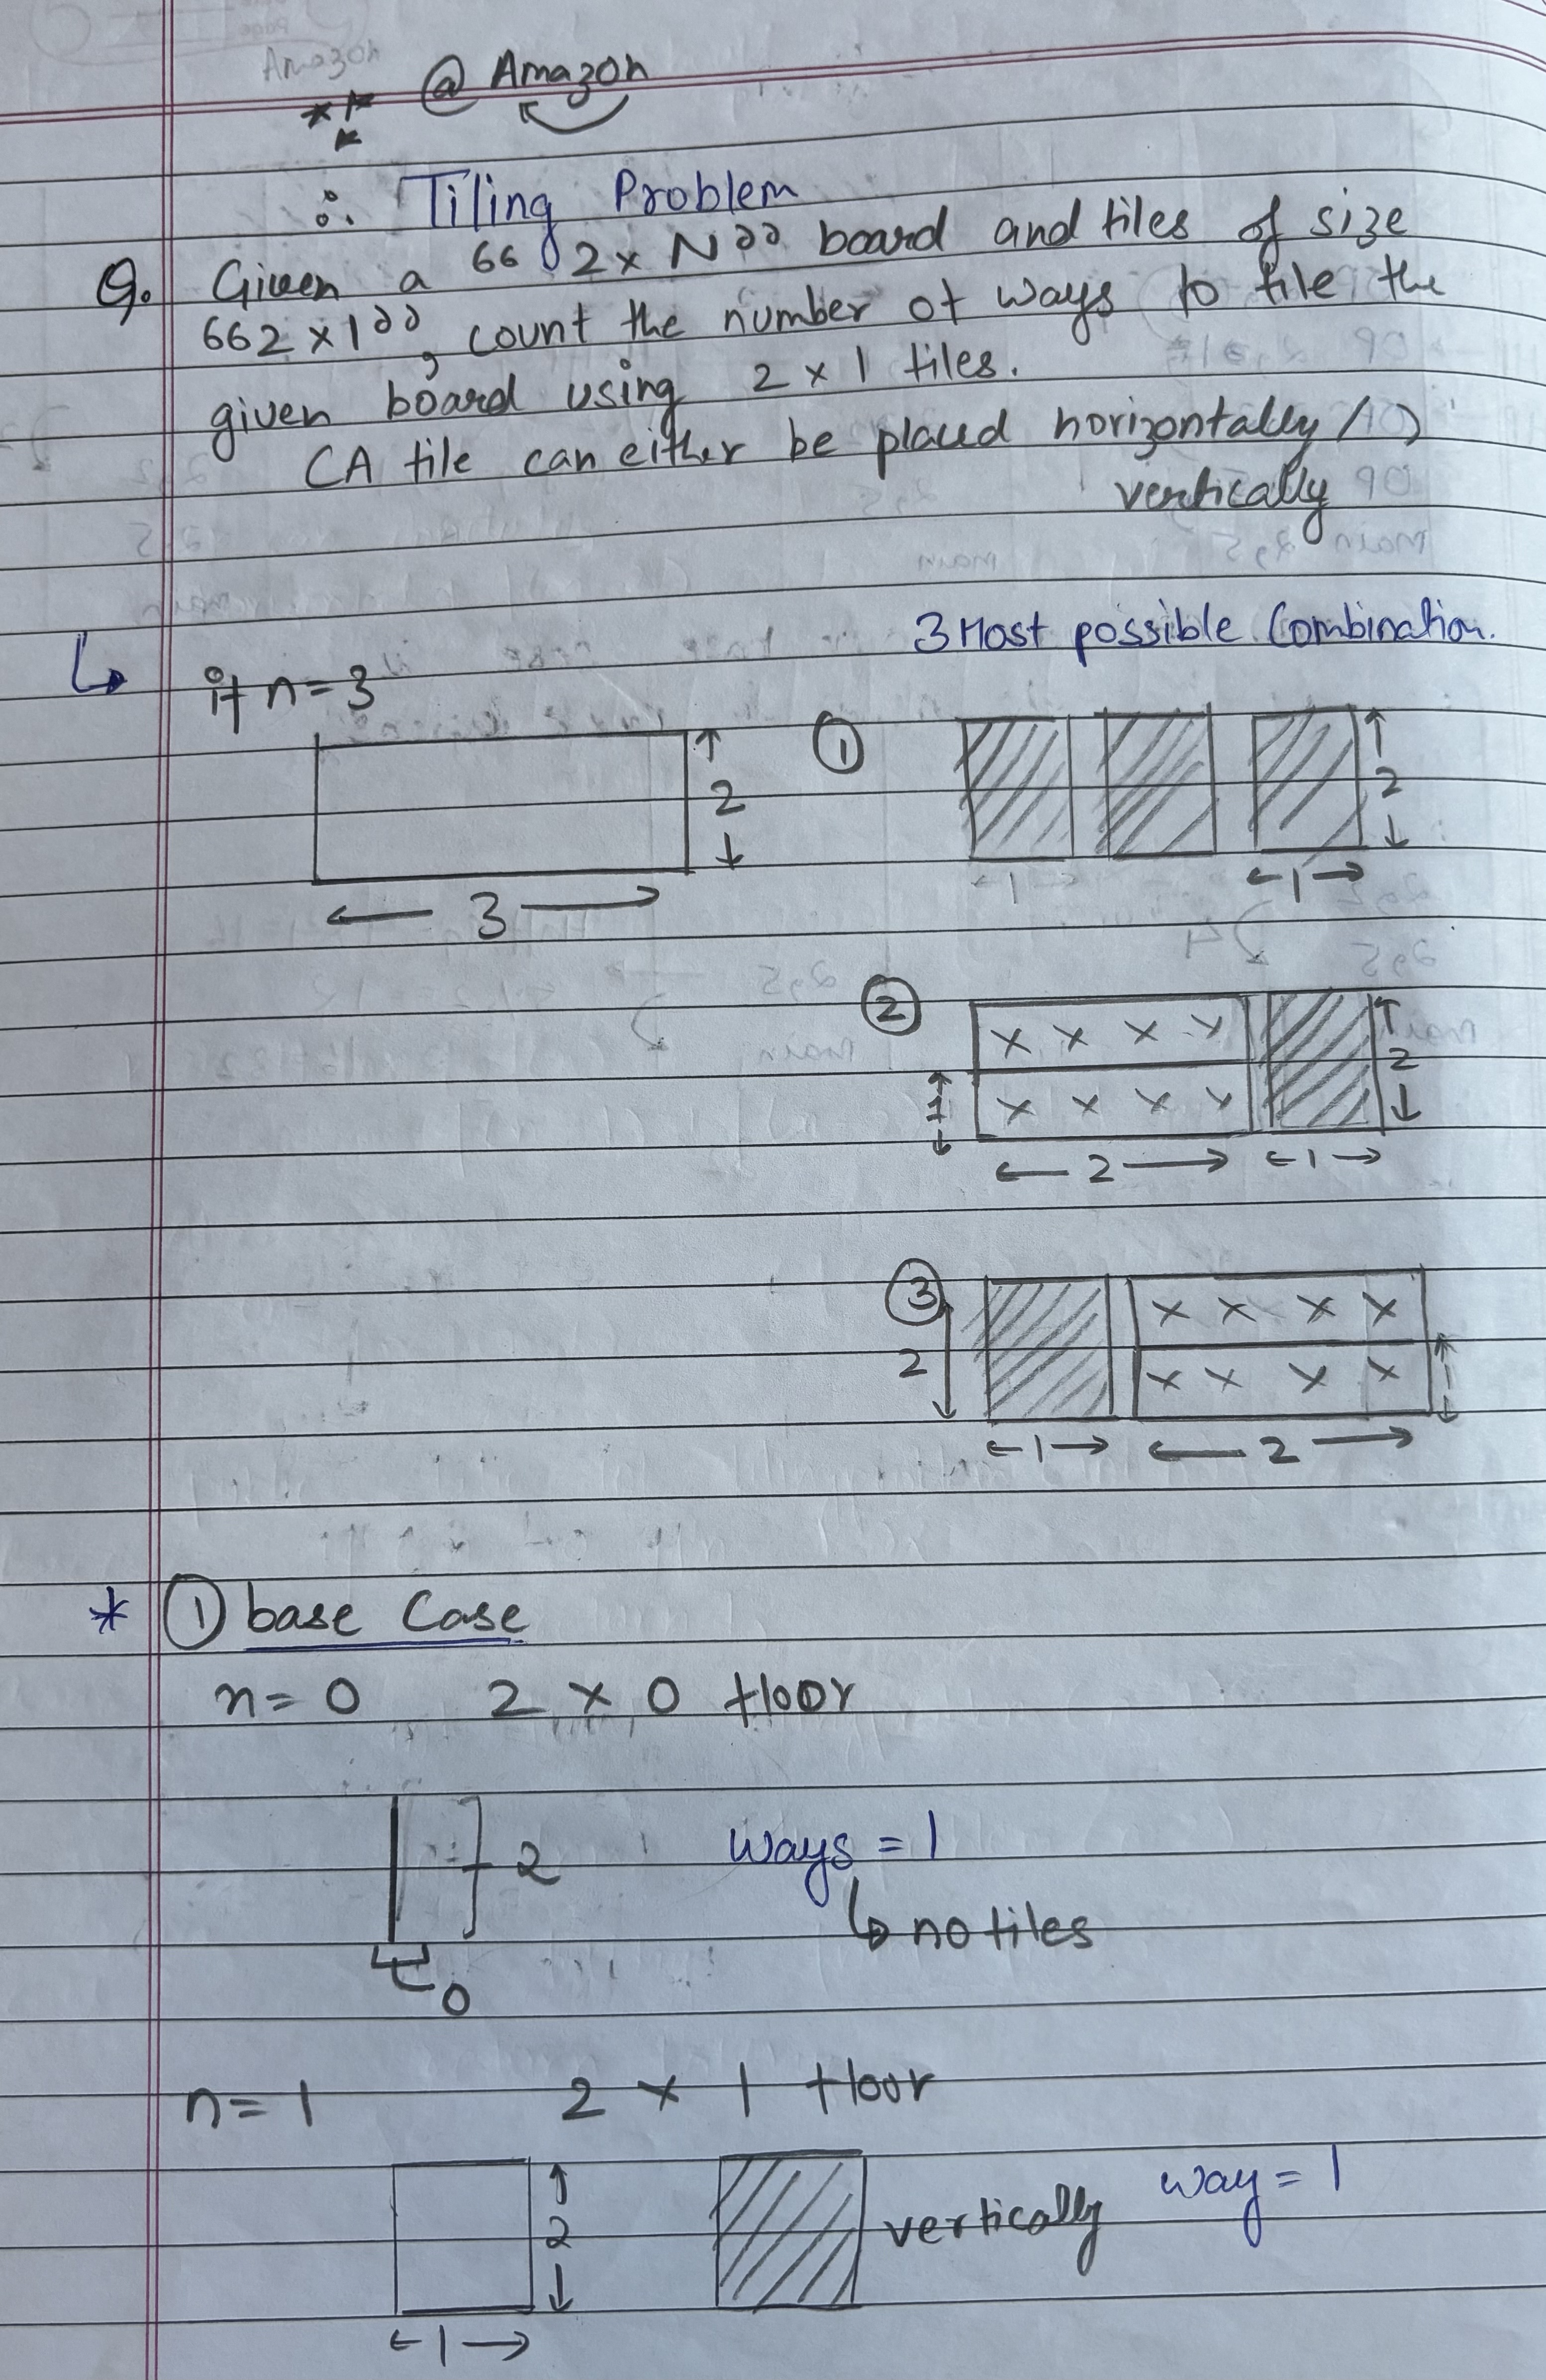 Amazon
*** @ Amazon
∴ Tiling Problem
Q. Given a "2 x N" board and tiles of size
"2 x 1", count the number of ways to tile the
given board using 2 x 1 tiles.
(A tile can either be placed horizontally /)
vertically
3 Most possible Combination.
↳ if n = 3
① 2 2
← 3 → 1 ← 1 →
② x x x x
1 x x x x 2
← 2 → ← 1 →
③ x x x x
2 x x x x 1
← 1 → ← 2 →
* ① base Case
n = 0 2 x 0 floor
2 ways = 1
↳ no tiles
0
n = 1 2 x 1 floor
2 vertically way = 1
← 1 →